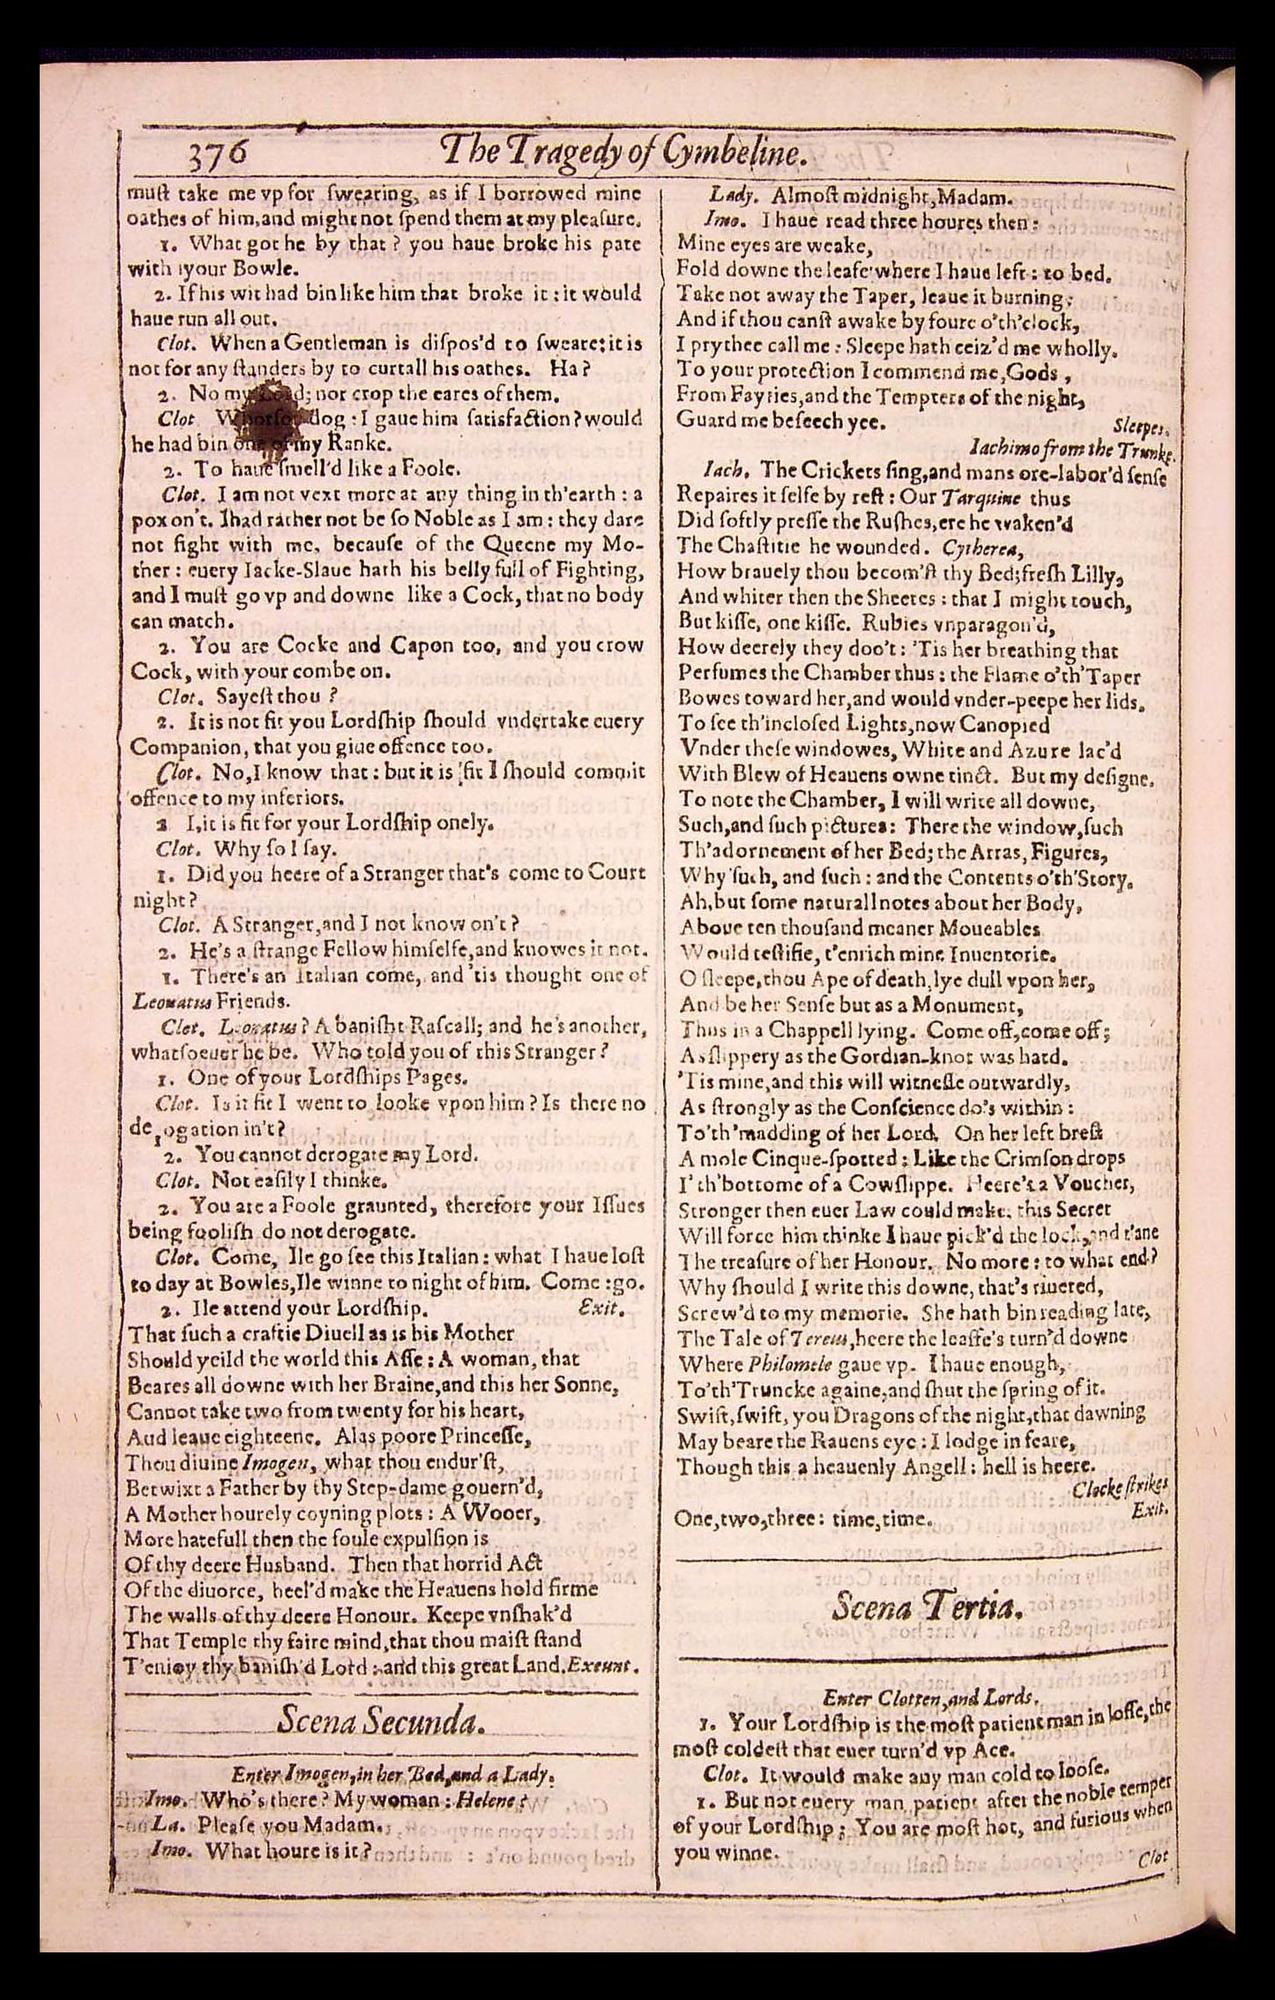 376
The Tragedy of Cymbeline.
must take me vp for swearing, as if I borrowed mine
oathes of him, and might not spend them at my pleasure.
1. What got he by that? you haue broke his pate
with your Bowle.
2. If his wit had bin like him that broke it: it would
haue run all out.
Clot. When a Gentleman is dispos'd to sweare: it is
not for any standers by to curtall his oathes. Ha?
2. No my Lord; nor crop the eares of them.
Clot. dog: I gaue him satisfaction? would
he had bin one of my Ranke.
2. To haue smell'd like a Foole.
Clot. I am not vext more at any thing in th'earth: a
pox on't. I had rather not be so Noble as I am: they dare
not fight with me, because of the Queene my Mo-
ther: euery Iacke-Slaue hath his belly full of Fighting,
and I must go vp and downe like a Cock, that no body
can match.
2. You are Cocke and Capon too, and you crow
Cock, with your combe on.
Clot. Sayest thou?
2. It is not fit you Lordship should vndertake euery
Companion, that you giue offence too.
Clot. No, I know that: but it is fit I should commit
offence to my inferiors.
2 I, it is fit for your Lordship onely.
Clot. Why so I say.
1. Did you heere of a Stranger that's come to Court
night?
Clot. A Stranger, and I not know on't?
2. He's a strange Fellow himselfe, and knowes it not.
1. There's an Italian come, and 'tis thought one of
Leonatus Friends.
Clot. Leonatus? A banisht Rascall; and he's another,
whatsoeuer he be. Who told you of this Stranger?
1. One of your Lordships Pages.
Clot. Is it fit I went to looke vpon him? Is there no
derogation in't?
2. You cannot derogate my Lord.
Clot. Not easily I thinke.
2. You are a Foole graunted, therefore your Issues
being foolish do not derogate.
Clot. Come, Ile go see this Italian: what I haue lost
to day at Bowles, Ile winne to night of him. Come: go.
2. Ile attend your Lordship. Exit.
That such a craftie Diuell as is his Mother
Should yeild the world this Asse: A woman, that
Beares all downe with her Braine, and this her Sonne,
Cannot take two from twenty for his heart,
And leaue eighteene. Alas poore Princesse,
Thou diuine Imogen, what thou endur'st,
Betwixt a Father by thy Step-dame gouern'd,
A Mother hourely coyning plots: A Wooer,
More hatefull then the foule expulsion is
Of thy deere Husband. Then that horrid Act
Of the diuorce, heel'd make the Heauens hold firme
The walls of thy deere Honour. Keepe vnshak'd
That Temple thy faire mind, that thou maist stand
T'enioy thy banish'd Lord: and this great Land. Exeunt.
Scena Secunda.
Enter Imogen, in her Bed, and a Lady.
Imo. Who's there? My woman: Helene?
La. Please you Madam.
Imo. What houre is it?
Lady. Almost midnight, Madam.
Imo. I haue read three houres then:
Mine eyes are weake,
Fold downe the leafe where I haue left: to bed.
Take not away the Taper, leaue it burning:
And if thou canst awake by foure o'th'clock,
I prythee call me: Sleepe hath ceiz'd me wholly.
To your protection I commend me, Gods,
From Fayries, and the Tempters of the night,
Guard me beseech yee. Sleepes.
Iachimo from the Trunke.
Iach. The Crickets sing, and mans ore-labor'd sense
Repaires it selfe by rest: Our Tarquine thus
Did softly presse the Rushes, ere he waken'd
The Chastitie he wounded. Cytherea,
How brauely thou becom'st thy Bed; fresh Lilly,
And whiter then the Sheetes: that I might touch,
But kisse, one kisse. Rubies vnparagon'd,
How deerely they doo't: 'Tis her breathing that
Perfumes the Chamber thus: the Flame o'th'Taper
Bowes toward her, and would vnder-peepe her lids.
To see th'inclosed Lights, now Canopied
Vnder these windowes, White and Azure lac'd
With Blew of Heauens owne tinct. But my designe.
To note the Chamber, I will write all downe,
Such, and such pictures: There the window, such
Th'adornement of her Bed; the Arras, Figures,
Why such, and such: and the Contents o'th'Story.
Ah, but some naturall notes about her Body,
Aboue ten thousand meaner Moueables
Would testifie, t'enrich mine Inuentorie.
O sleepe, thou Ape of death, lye dull vpon her,
And be her Sense but as a Monument,
Thus in a Chappell lying. Come off, come off;
As slippery as the Gordian-knot was hard.
'Tis mine, and this will witnesse outwardly,
As strongly as the Conscience do's within:
To'th'madding of her Lord. On her left brest
A mole Cinque-spotted: Like the Crimson drops
I'th'bottome of a Cowslippe. Heere's a Voucher,
Stronger then euer Law could make; this Secret
Will force him thinke I haue pick'd the lock, and t'ane
The treasure of her Honour. No more: to what end?
Why should I write this downe, that's riueted,
Screw'd to my memorie. She hath bin reading late,
The Tale of Tereus, heere the leaffe's turn'd downe
Where Philomele gaue vp. I haue enough,
To'th'Truncke againe, and shut the spring of it.
Swift, swift, you Dragons of the night, that dawning
May beare the Rauens eye: I lodge in feare,
Though this a heauenly Angell: hell is heere.
Clocke strikes
One, two, three: time, time. Exit.
Scena Tertia.
Enter Clotten, and Lords.
1. Your Lordship is the most patient man in losse, the
most coldest that euer turn'd vp Ace.
Clot. It would make any man cold to loose.
1. But not euery man patient after the noble temper
of your Lordship; You are most hot, and furious when
you winne.
Clot